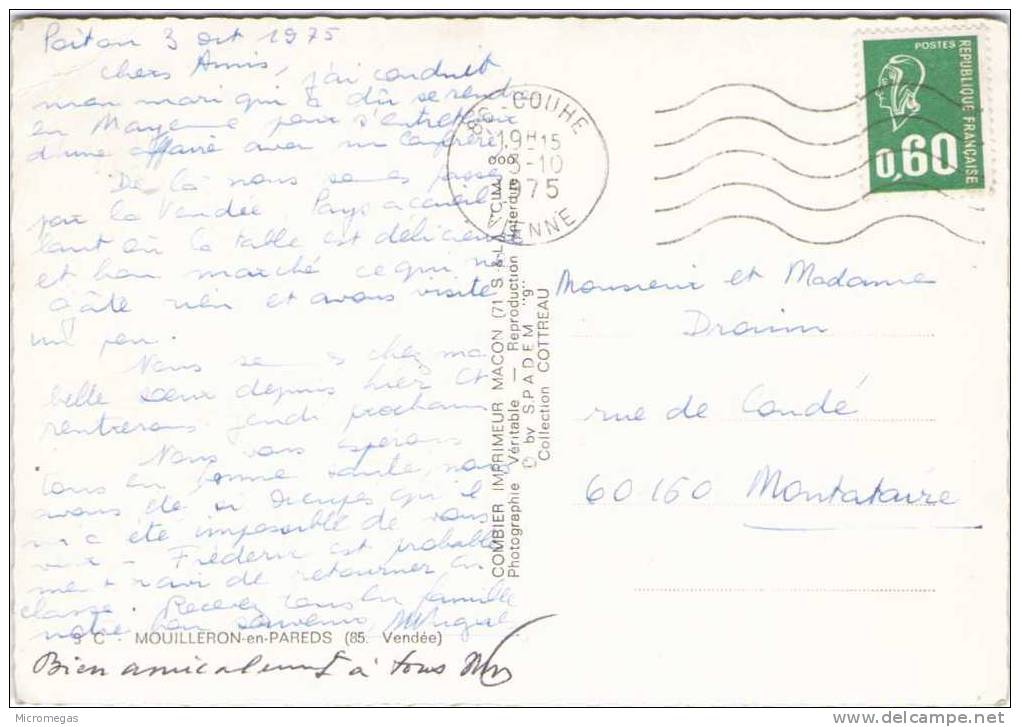 Poitou 3 oct 1975
Chers Amis, j'ai conduit
mon mari qui a dû se rendre
en Mayenne pour s'entretenir
d'une affaire avec un confrère
De là nous sommes passés
par la Vendée, Pays accueil
lant où la table est délicieuse
et bon marché ce qui ne
gâte rien et avons visité
un peu.
Nous sommes chez ma
belle soeur depuis hier et
rentrerons jeudi prochain
Nous vous espérons
tous en bonne santé, nous
avons été si occupés qu'il
m'a été impossible de vous
voir - Frédéric est probable
ment ravi de retourner en
classe. Recevez tous en famille
notre bon souvenir,
Bien amicalement à tous
9 C - MOUILLERON-en-PAREDS (85. Vendée)
COMBIER IMPRIMEUR MACON (71 S.-&-L.) "CIM"
Photographie Véritable — Reproduction Interdite
© by S.P.A.D.E.M "9"
Collection COTTREAU
86 COUHE
19H15
3-10
1975
VIENNE
POSTES
REPUBLIQUE FRANÇAISE
0,60
Monsieur et Madame
rue de Condé
60160 Montataire
Micromegas
www.delcampe.net